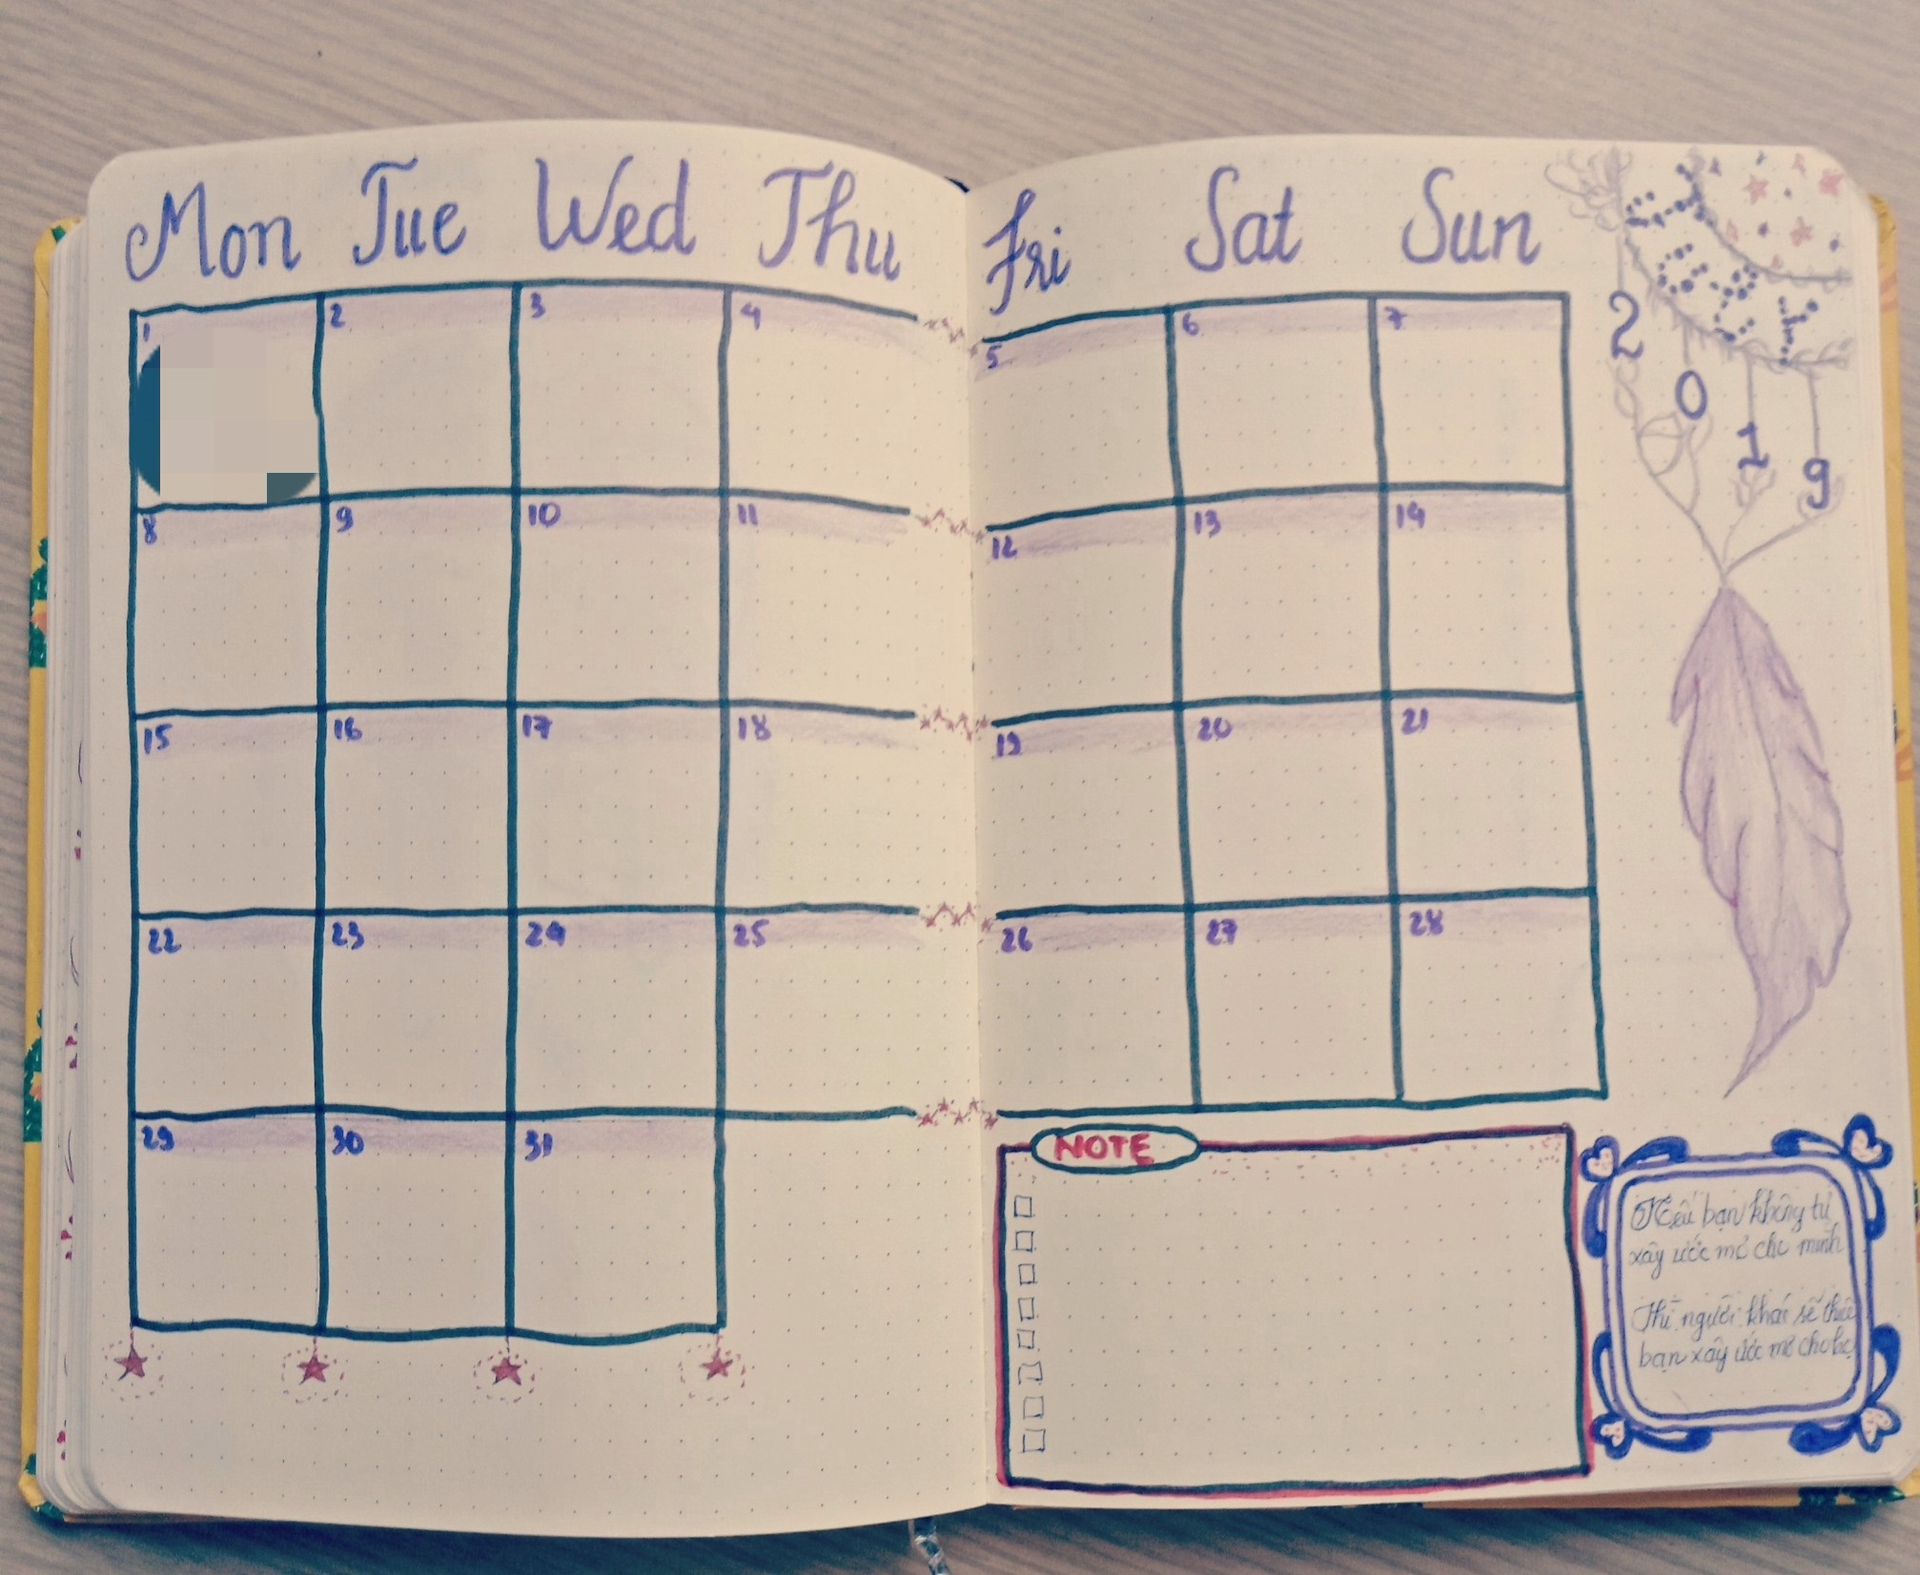 Mon Tue Wed Thu Fri Sat Sun
1 2 3 4 5 6 7
8 9 10 11 12 13 14
15 16 17 18 19 20 21
22 23 24 25 26 27 28
29 30 31
2019
NOTE
Nếu bạn không tự
xây ước mơ cho mình
Thì người khác sẽ thuê
bạn xây ước mơ cho họ